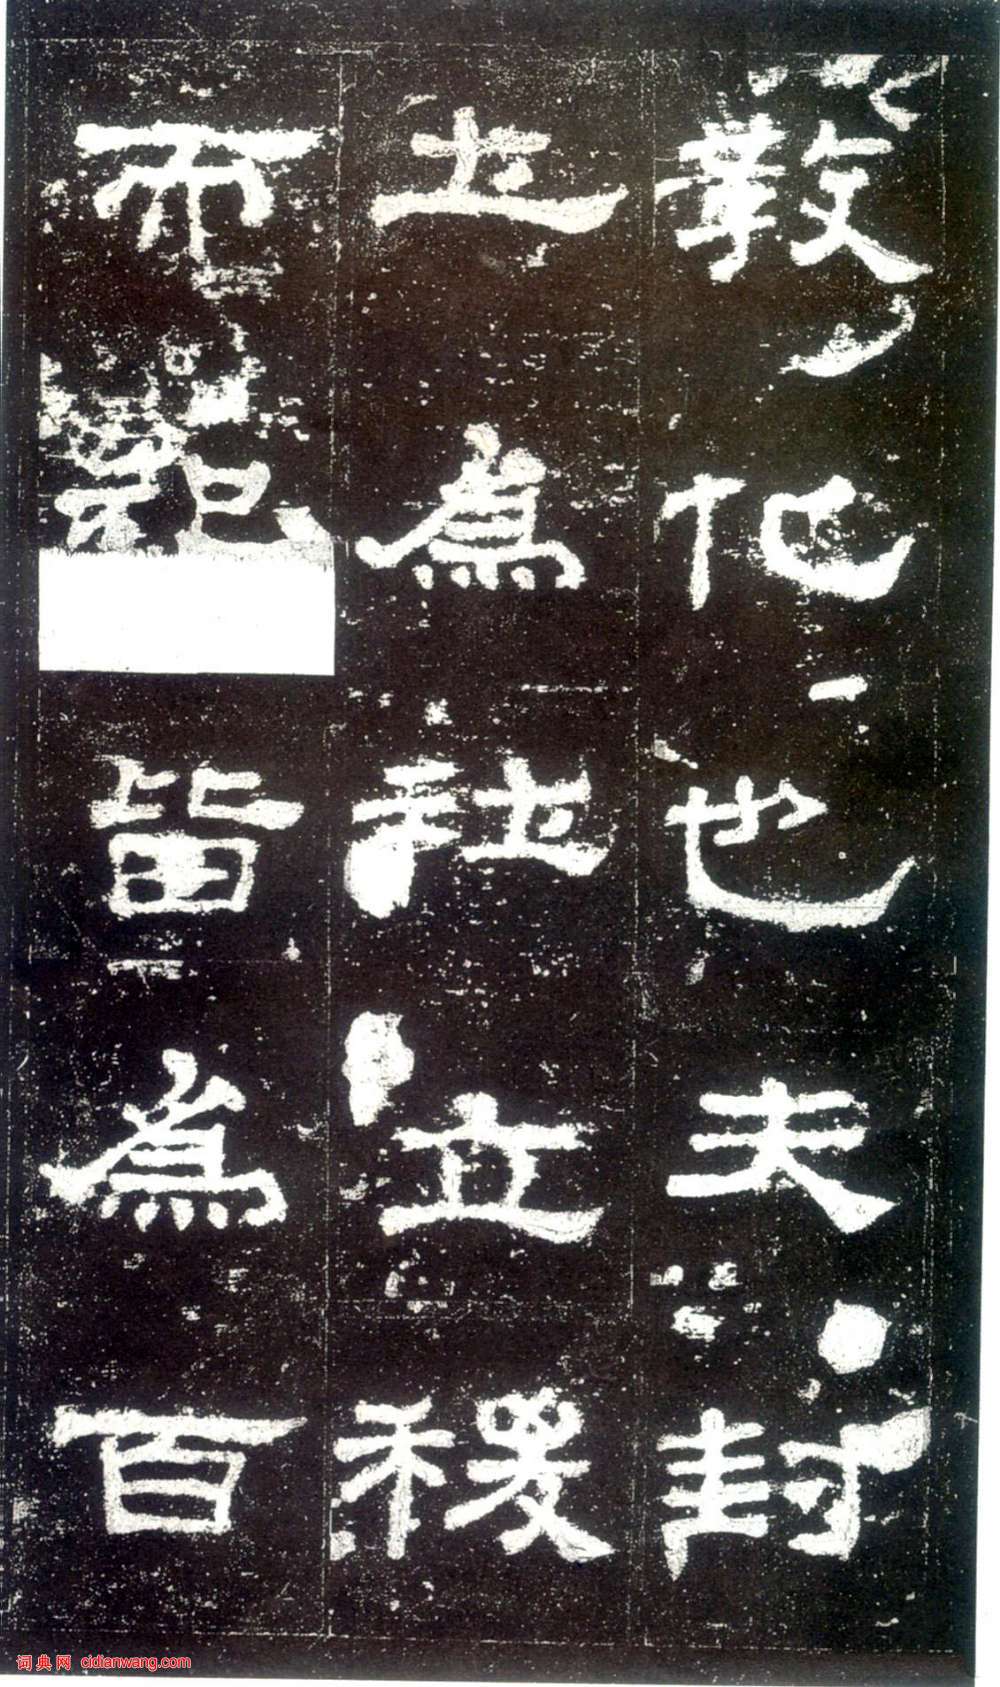 教化也夫封
土為社立稷
而祀皆為百
词典网 cidianwang.com